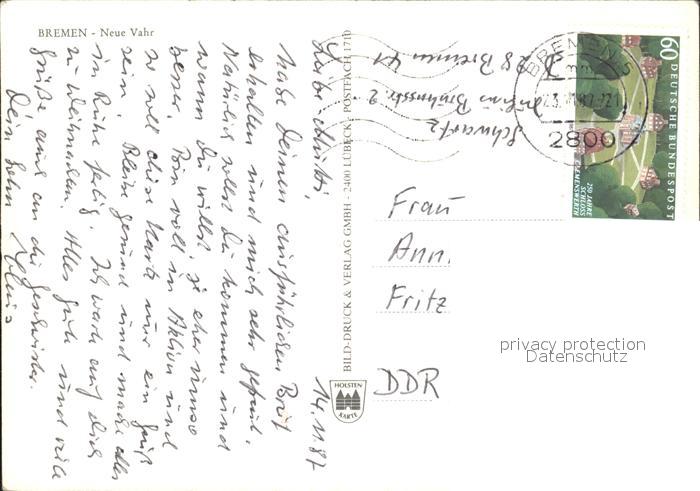 BREMEN - Neue Vahr
14.11.87
Liebe Mutti
habe Deinen ausführlichen Brief
erhalten und mich sehr gefreut.
Natürlich sollst Du kommen und
wann Du willst, je eher umso
besser. Bin voll in Aktion und
so soll diese Karte nur ein Gruß
sein. Bleib gesund und mache alles
in Ruhe fertig. Ich warte auf Dich
zu Weihnachten. Alles gute und viele
Grüße, auch an die Geschwister.
Dein Sohn
Klaus
BILD-DRUCK & VERLAG GMBH - 2400 LÜBECK - POSTFACH 1710
HOLSTEN
KARTE
Schwartz
Brahmsstr. 2
28 Bremen 41
BREMEN 5
2800
60
DEUTSCHE BUNDESPOST
250 JAHRE
SCHLOSS
CLEMENSWERTH
Frau
Ann.
Fritz
DDR
privacy protection
Datenschutz